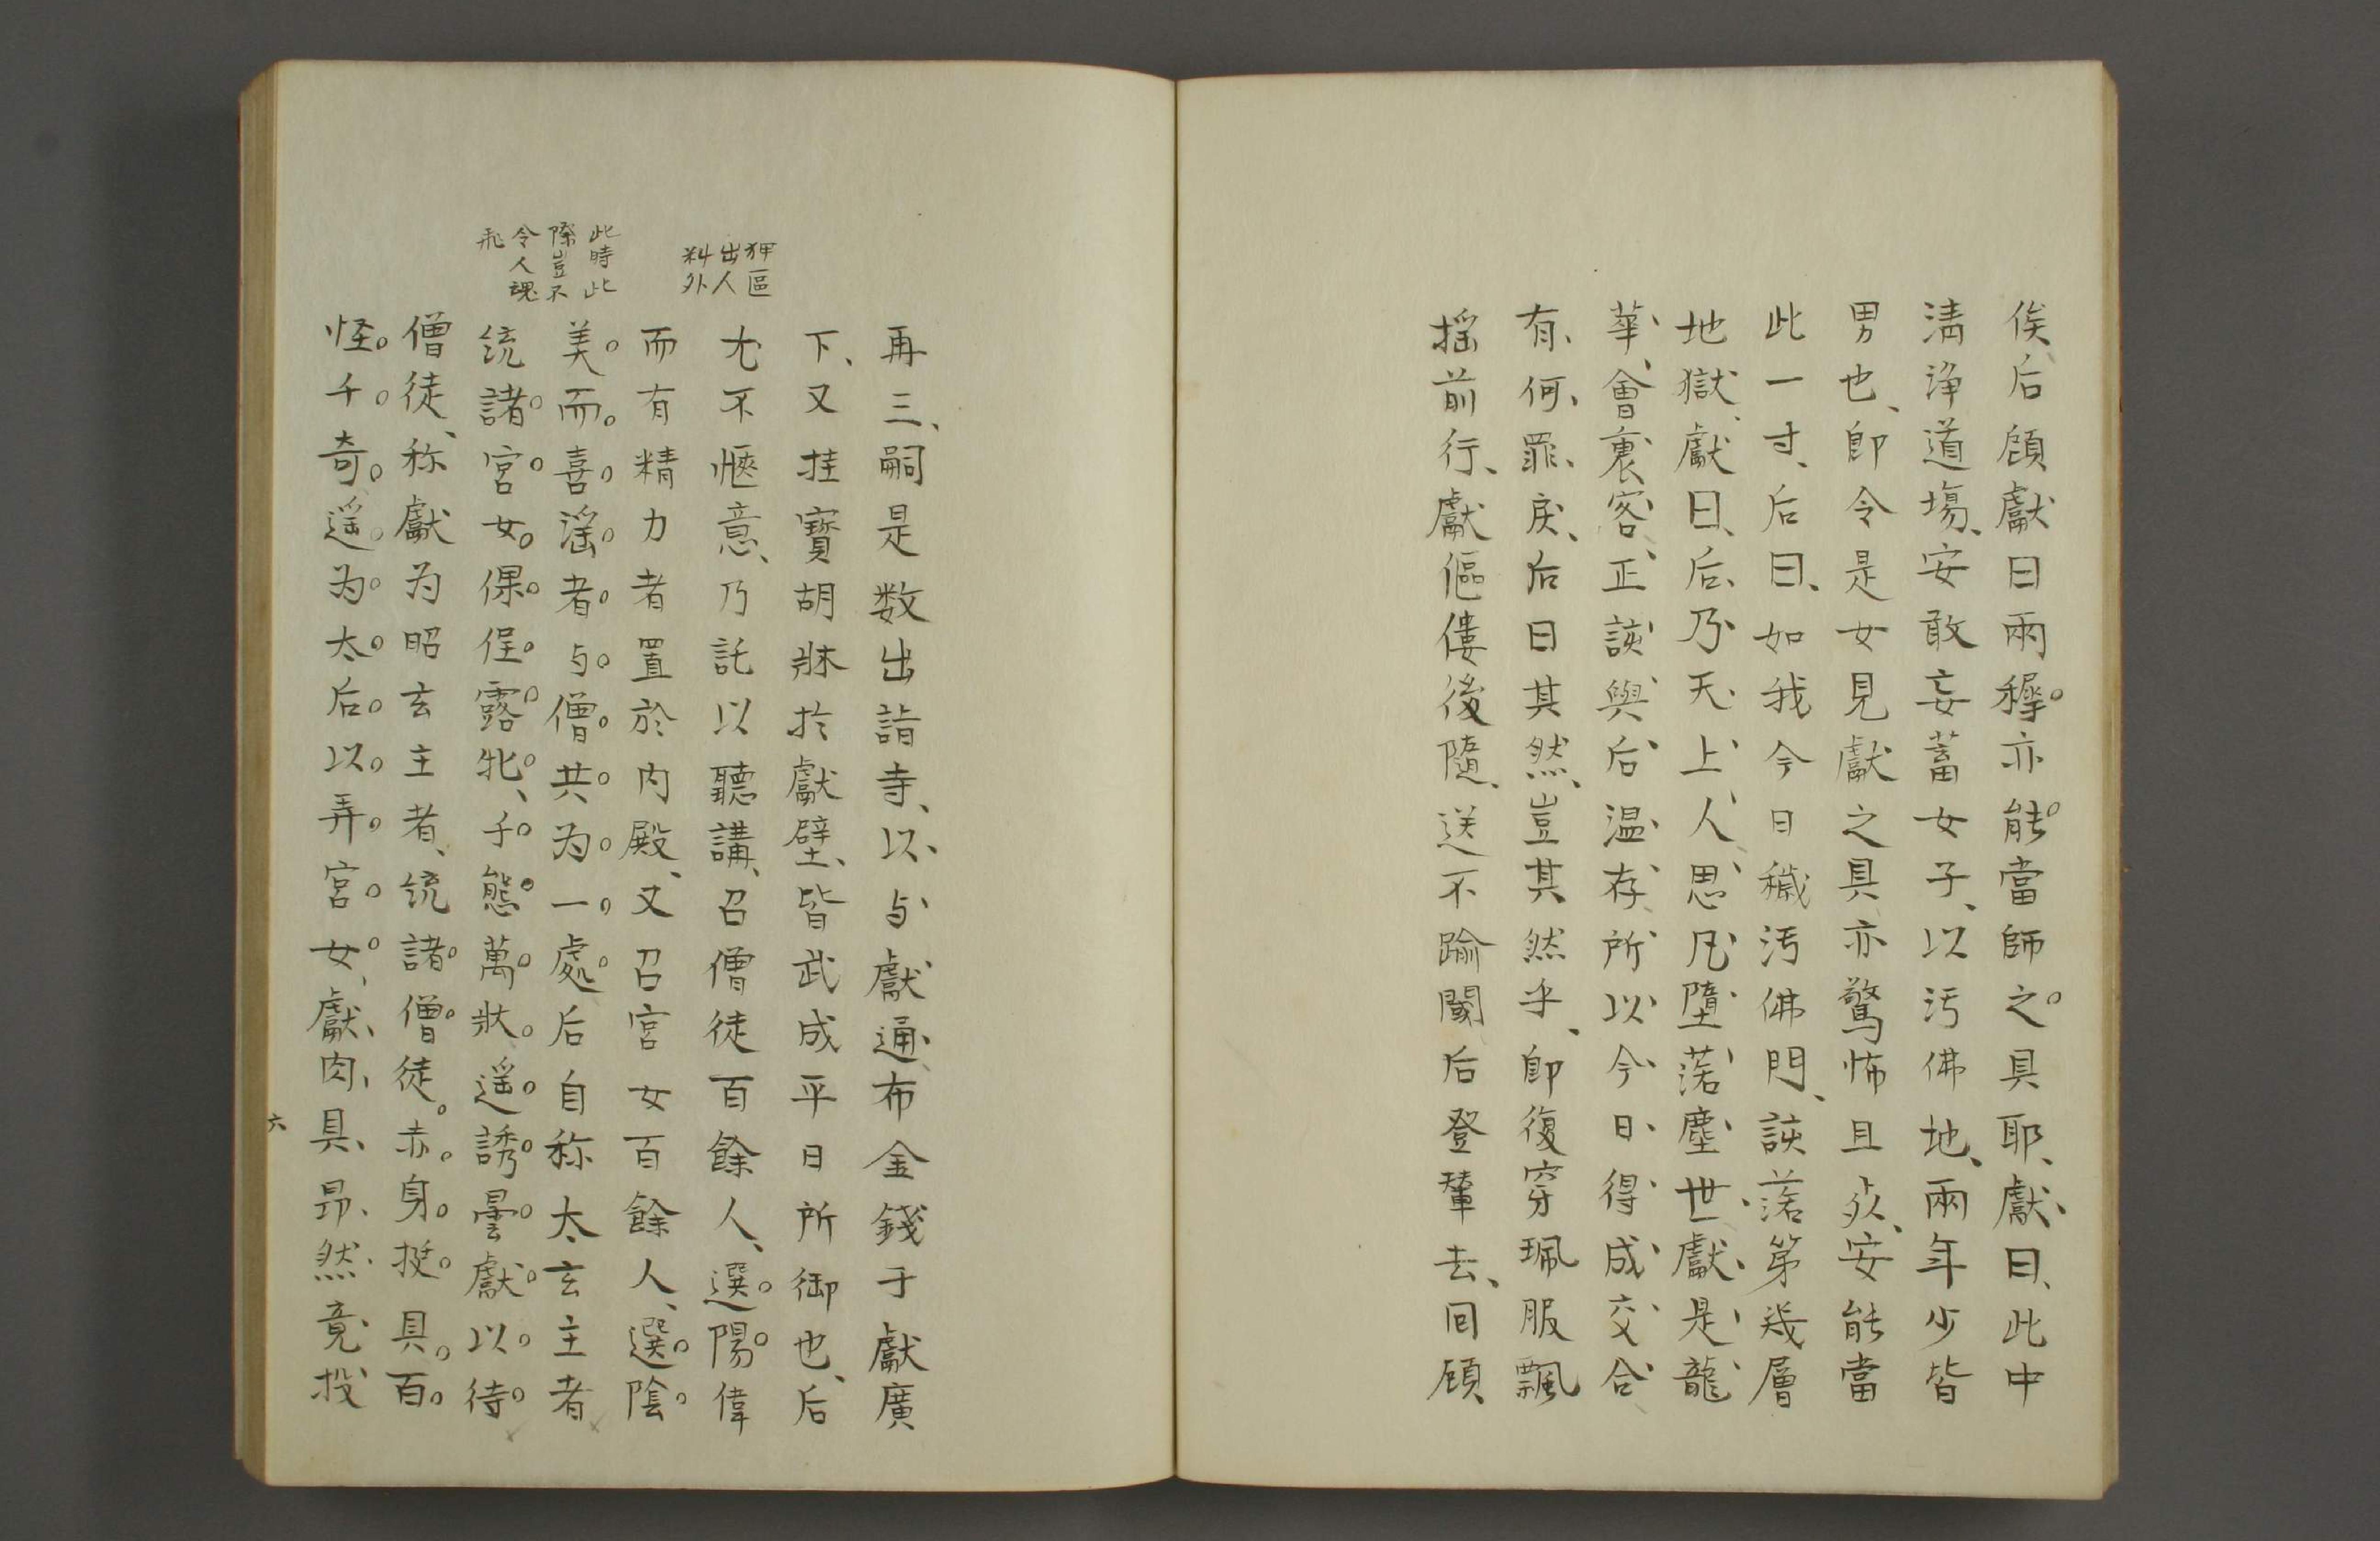 俟后顧獻曰兩穉亦能當師之具耶獻曰此中
淸淨道塲安敢妄蓄女子以汚佛地兩年少皆
男也卽令是女見獻之具亦驚怖且死安能當
此一寸后曰如我今日穢汚佛門該落第幾層
地獄獻曰后乃天上人思凡墮落塵世獻是龍
華會裏客正該與后温存所以今日得成交合
有何罪戾后曰其然豈其然乎卽復穿珮服飄
摇前行獻傴僂後隨送不踰閾后登輦去回顧
再三嗣是数出詣寺以与獻通布金錢于獻廣
下又挂寶胡牀扵獻壁皆武成平日所御也后
尤不愜意乃託以聽講召僧徒百餘人選陽偉
而有精力者置於内殿又召宮女百餘人選陰
美而喜滛者与僧共为一處后自称太玄主者
统諸宮女倮侱露牝千態萬狀遥誘曇獻以待
僧徒称獻为昭玄主者统諸僧徒赤身挺具百
怪千奇遥为太后以弄宮女獻肉具昂然竟投
狎區
出人
料外
此時此
際豈不
令人魂
飛
六